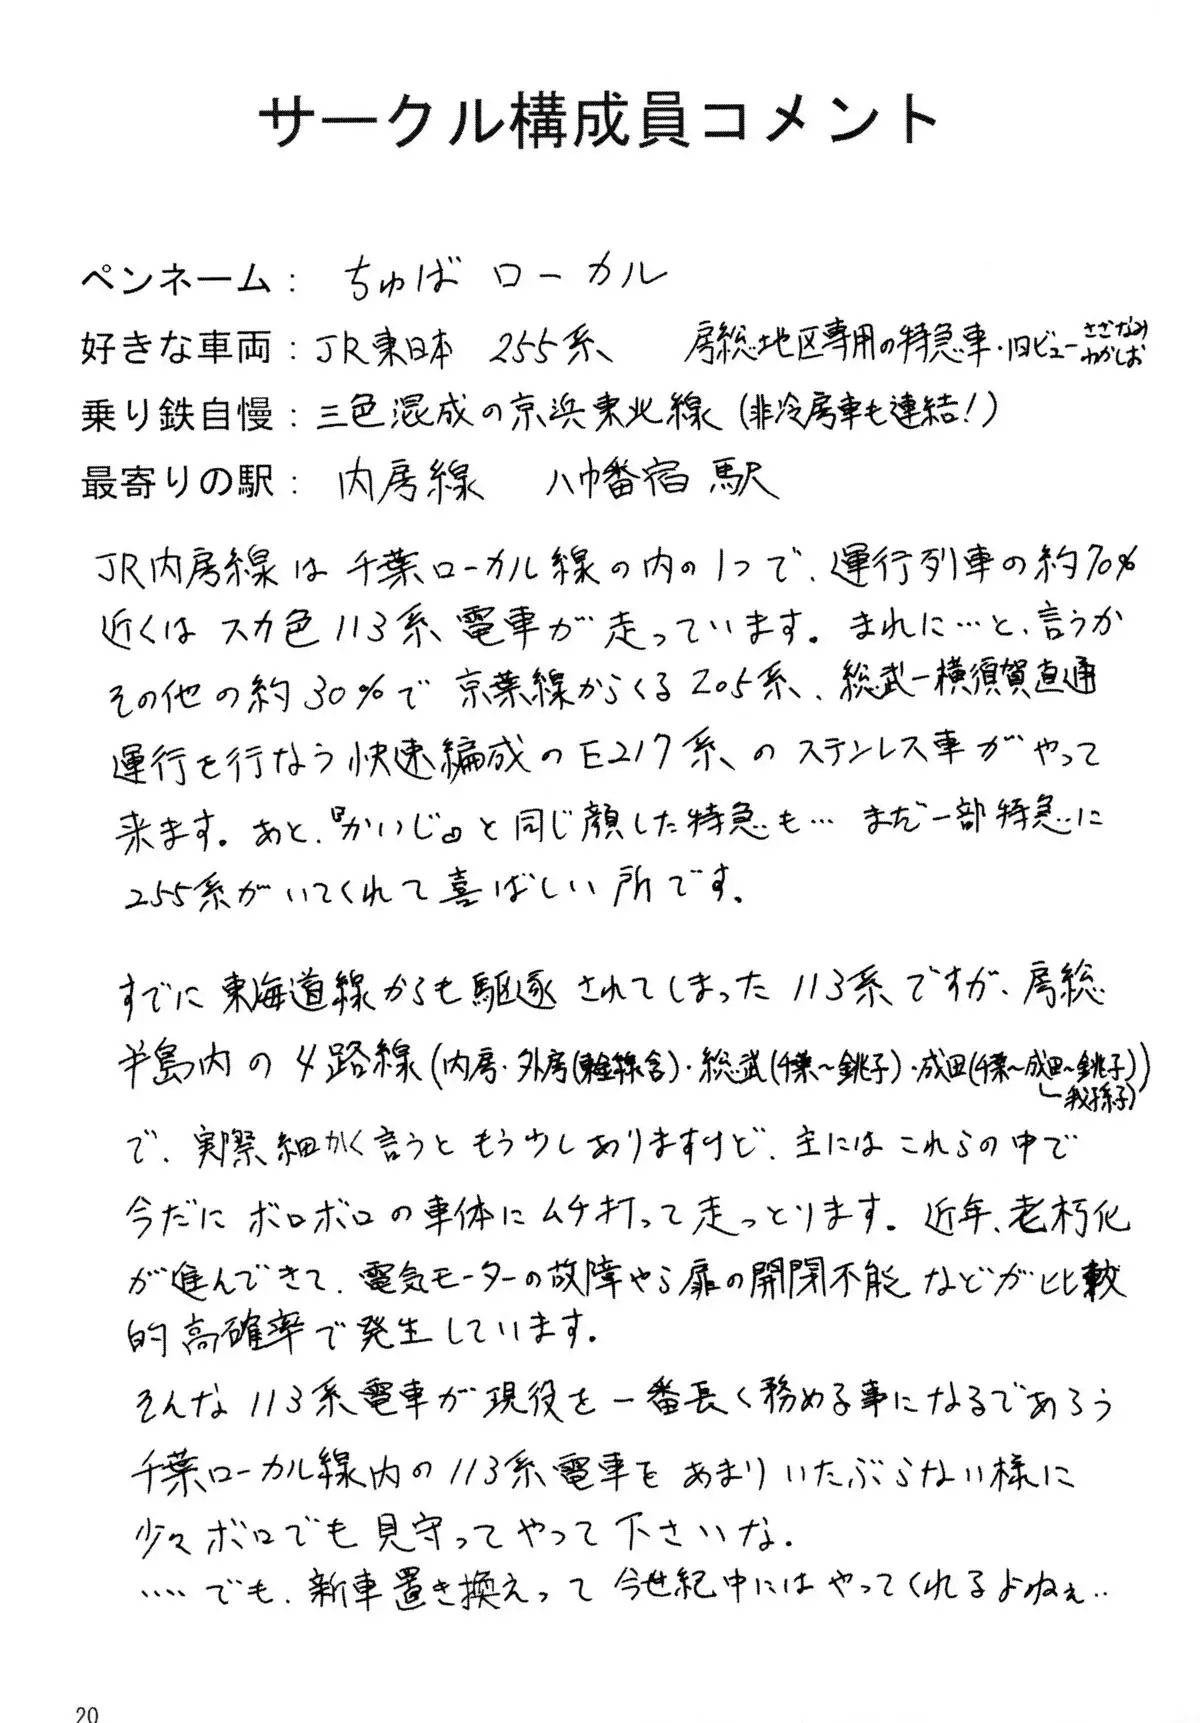 サークル構成員コメント
ペンネーム： ちゅば ローカル
好きな車両：JR東日本 255系、 房総地区専用の特急車・旧ビューさざなみ
わかしお
乗り鉄自慢：三色混成の京浜東北線(非冷房車も連結！)
最寄りの駅： 内房線 八幡宿駅
JR内房線は千葉ローカル線の内の1つで、運行列車の約70%
近くはスカ色113系、電車が走っています。まれに…と、言うか
その他の約30%で京葉線からくる205系、総武ー横須賀直通
運行を行なう快速編成のE217系、のステンレス車がやって
来ます。あと、『かいじ』と同じ顔した特急も… まだ一部特急に
255系がいてくれて喜ばしい所です。
すでに東海道線からも駆逐されてしまった113系ですが、房総
半島内の4路線(内房・外房(東金線含)・総武(千葉〜銚子)・成田(千葉〜成田〜銚子)
我孫子))
で、実際細かく言うともう少しありますけど、主にはこれらの中で
今だにボロボロの車体にムチ打って走っとります。近年、老朽化
が進んできて、電気モーターの故障やら扉の開閉不能などが比較
的高確率で発生しています。
そんな113系電車が現役を一番長く務める事になるであろう
千葉ローカル線内の113系電車をあまりいたぶらない様に
少々ボロでも見守ってやって下さいな。
…‥でも、新車置き換えって今世紀中にはやってくれるよねぇ‥
20